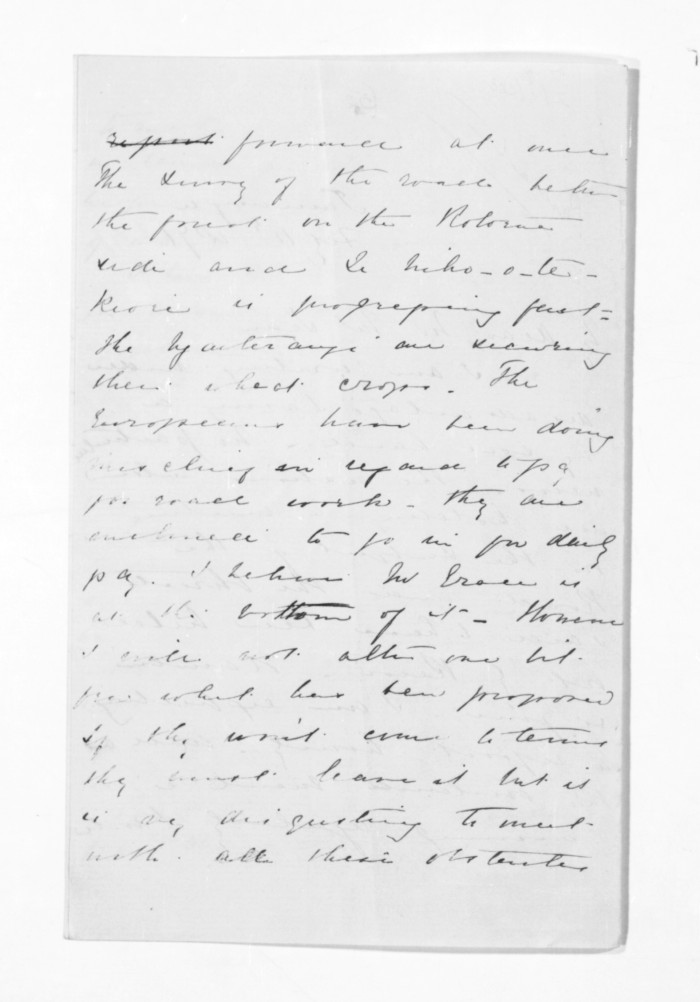 ~~report~~ forward at once
The survey of the road betwn
the forest on the Rotorua
side and Te Niho-o-te-
Kiori is progressing fast=
The Ngaiterangi are securing
their wheat crops. The
Europeans have been doing
mischief in regard to pay
for road work - they are
inclined to go in for daily
pay. I believe Mr Grace is
at the bottom of it - However
I will not alter one bit
from what has been proposed
If they wont come to terms
they must leave it but it
is very disgusting to meet
with all these obstacles